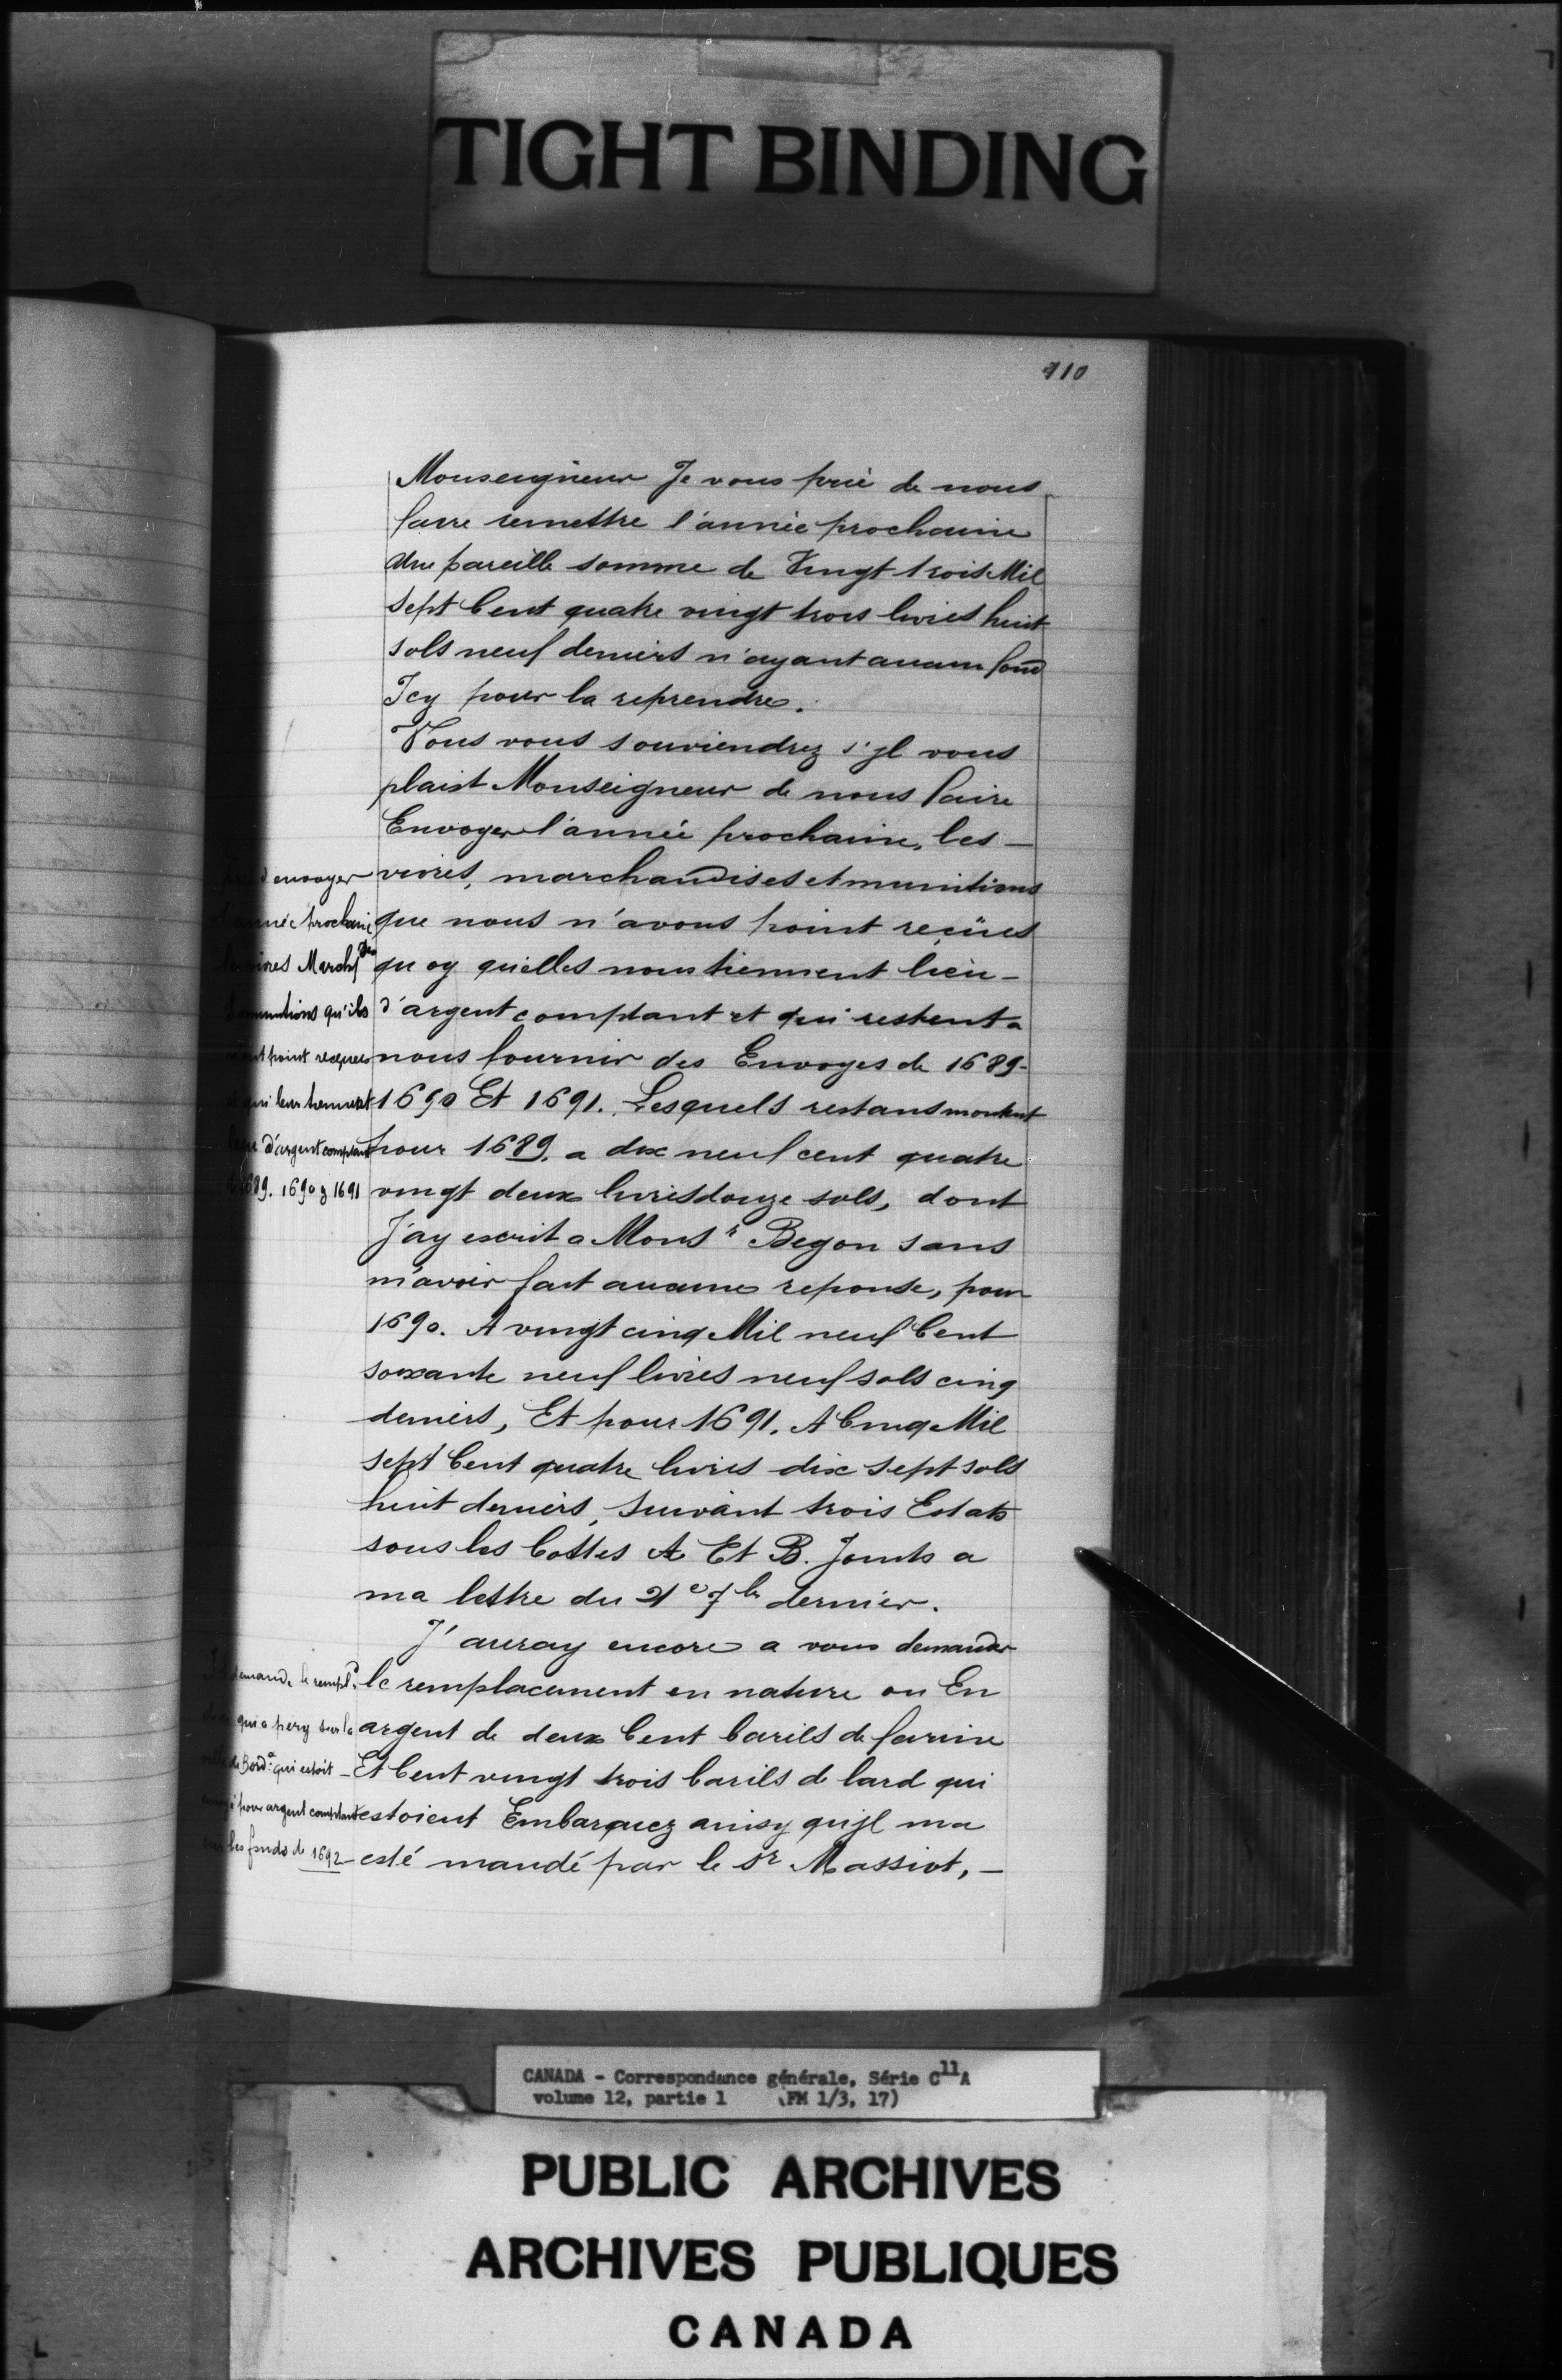 TIGHT BINDING
110
Monseigneur Je vous prie de nous
faire remettre l'année prochaine
une pareille somme de Vingt trois Mil
sept Cent quatre vingt trois livres huit
sols neuf deniers n'ayant aucun fond
Icy pour la reprendre.
Vous vous souviendrez s'jl vous
plaist Monseigneur de nous faire
Envoyer l'année prochaine, les —
vivres, marchandises et munitions
que nous n'avons point reçües
quoy qu'elles nous tiennent lieu —
d'argent comptant et qui restent a
nous fournir des Envoyes de 1689 -
1690 Et 1691. Lesquels restans montent
pour 1689. a dix neuf cent quatre
vingt deux livres douze sols, dont
J'ay escrit a Mons r Begon sans
m'avoir fait aucune reponse, pour
1690. A vingt cinq Mil neuf Cent
soixante neuf livres neuf sols cinq
deniers, Et pour 1691. A Cinq Mil
sept Cent quatre livres dix sept sols
huit deniers, suivant trois Estats
sous les Cottes A Et B. Joints a
ma lettre du 21e 7bre dernier.
J'auray encore a vous demander
le remplacement en nature ou En
argent de deux Cent barils de farine
Et Cent vingt trois barils de lard qui
estoient Embarquez ainsy qu'jl ma
esté mandé par le Sr Massiot, —
d'envoyer
année prochaine
vivres March des
munitions qu'ils
point recques
qui leur tiennent
d'argent comptant
1689. 1690 & 1691
demande le rempl t
qui a pery sur la
de Bord x qui estoit —
pour argent comptant
les fonds de 1692
CANADA - Correspondance générale, Série C11A
volume 12, partie 1 (FM 1/3, 17)
PUBLIC ARCHIVES
ARCHIVES PUBLIQUES
CANADA